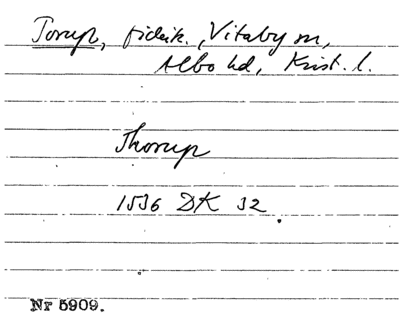 Torup, fideik., Vitaby sn,
Albo hd, Krist. l.
Thorup
1536 DK 32
Nr 5909.